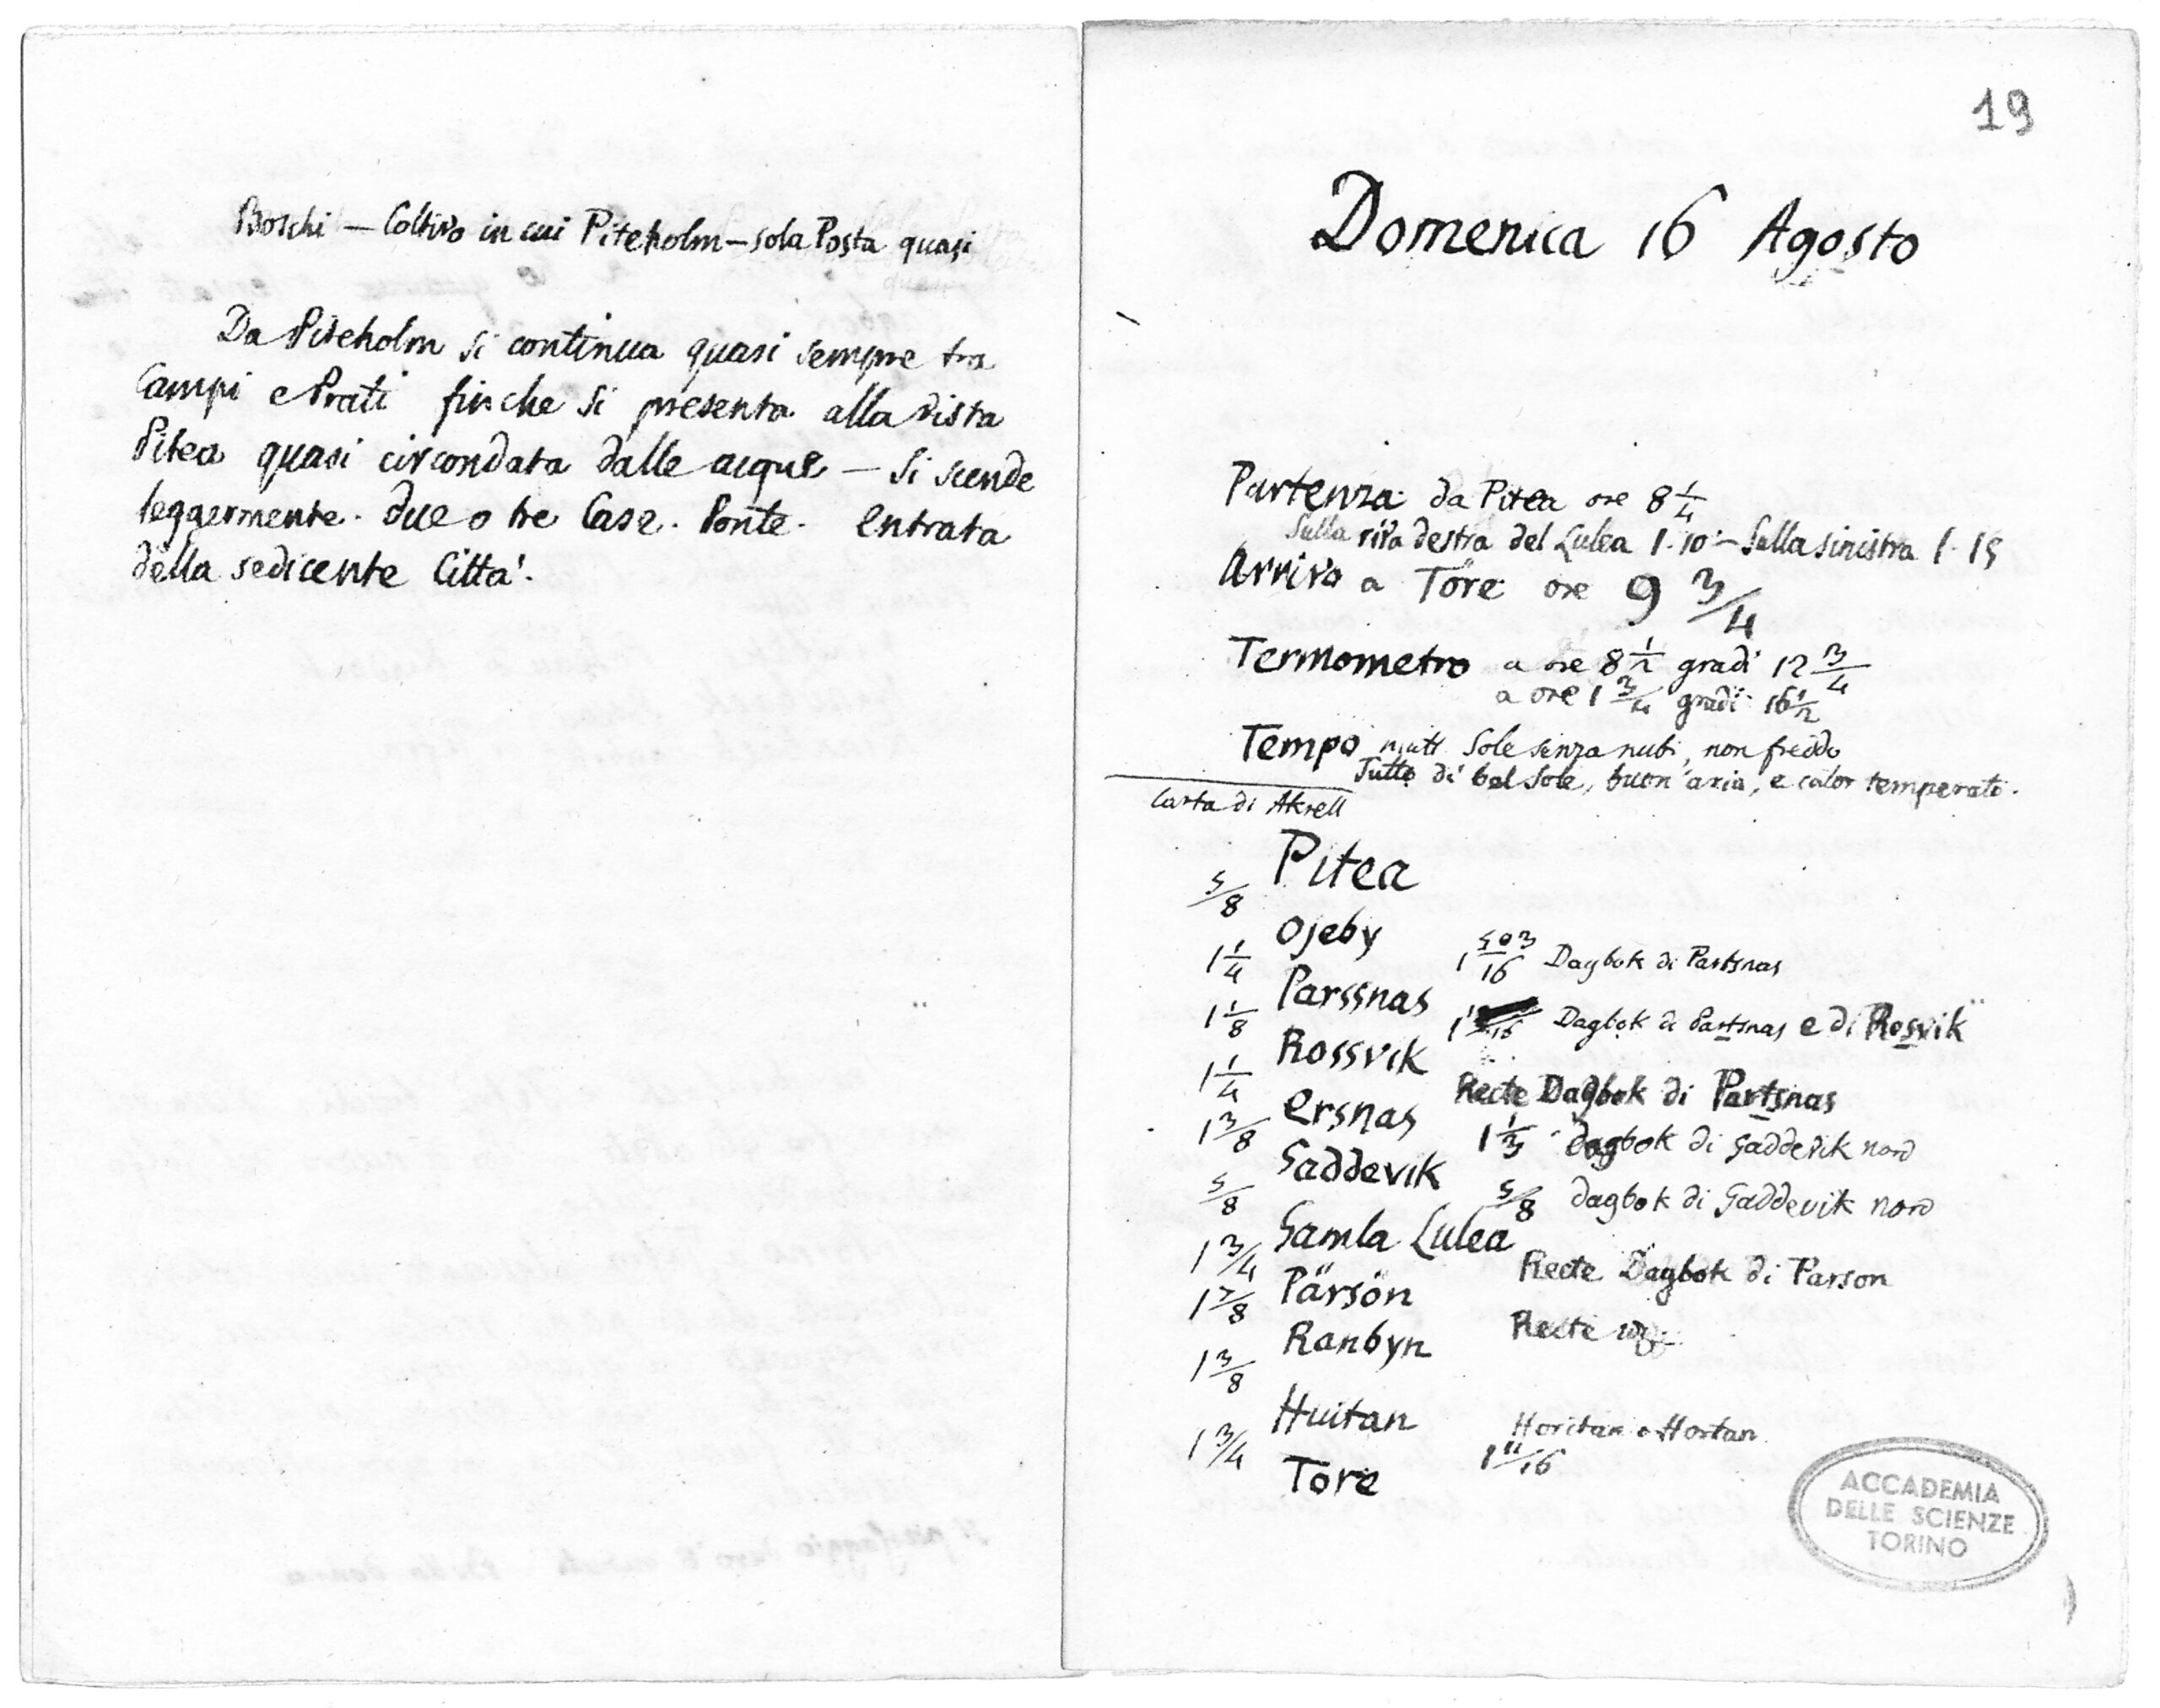 Boschi — Coltivo in cui Piteholm — sola Posta quasi
Da Piteholm si continua quasi sempre tra
Campi e Prati finche si presenta alla vista
Pitea quasi circondata dalle acque — Si scende
leggermente. due o tre Case. Ponte. Entrata
della sedicente Citta'.
19
Domenica 16 Agosto
Partenza da Pitea ore 8 1/4
Sulla riva destra del Lulea 1.10' — Sulla sinistra 1.15
Arrivo a Töre ore 9 3/4
Termometro a ore 8 1/2 gradi 12 3/4
a ore 1 3/4 gradi 16 1/2
Tempo matt. Sole senza nubi, non freddo
Tutto di bel Sole, buon'aria, e calor temperato.
Carta di Akrell
Pitea
5/8
Ojeby
1 1/4 1 5 o 3/16 Dagbok di Partsnas
Parssnas
1 1/8 Dagbok di Partsnas e di Rosvik
Rossvik
1 1/4 Recte Dagbok di Partsnas
Ersnas
1 3/8 1 1/3 dagbok di Gaddevik nord
Gaddevik
5/8 5/8 dagbok di Gaddevik nord
Gamla Lulea
1 3/4 Recte Dagbok di Parson
Pärsön
1 7/8 Recte
Ranbyn
1 3/8
Huitan Horitan o Hortan
1 3/4 1 11/16
Tore
ACCADEMIA
DELLE SCIENZE
TORINO